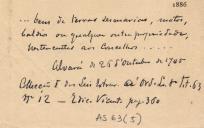 1886
... bens de terras sesmarias, mattos,
baldios ou quaesquer outra propriedade,
pertencentes aos Concelhos ......
Alvará de 26 d'Outubro de 1745
Collecção 1 das Leis Extrav. á Ord. L. 1º Tit. 63
Nº 12 — Edic. Vicent. pag. 360
AS 63 (5)